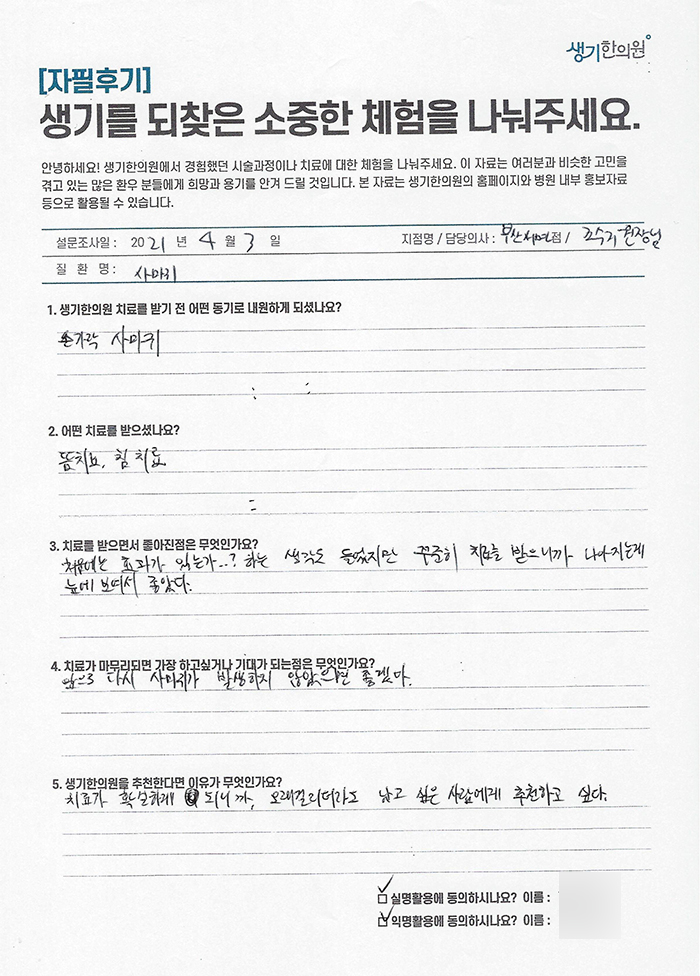 생기한의원
[자필후기]
생기를 되찾은 소중한 체험을 나눠주세요.
안녕하세요! 생기한의원에서 경험했던 시술과정이나 치료에 대한 체험을 나눠주세요. 이 자료는 여러분과 비슷한 고민을
겪고 있는 많은 환우 분들에게 희망과 용기를 안겨 드릴 것입니다. 본 자료는 생기한의원의 홈페이지와 병원 내부 홍보자료
등으로 활용될 수 있습니다.
설문조사일 : 2021 년 4 월 3 일 지점명 / 담당의사 : 부산서면점 / 원장님
질 환 명 : 사마귀
1. 생기한의원 치료를 받기 전 어떤 동기로 내원하게 되셨나요?
손가락 사마귀
2. 어떤 치료를 받으셨나요?
뜸치료, 침 치료
3. 치료를 받으면서 좋아진점은 무엇인가요?
처음에는 효과가 있는가..? 하는 생각도 들었지만 꾸준히 치료를 받으니까 나아지는게
눈에 보여서 좋았다.
4. 치료가 마무리되면 가장 하고싶거나 기대가 되는점은 무엇인가요?
앞으로 다시 사마귀가 발생하지 않았으면 좋겠다.
5. 생기한의원을 추천한다면 이유가 무엇인가요?
치료가 확실하게 되니까, 오래걸리더라도 낫고 싶은 사람에게 추천하고 싶다.
실명활용에 동의하시나요? 이름 :
익명활용에 동의하시나요? 이름 :